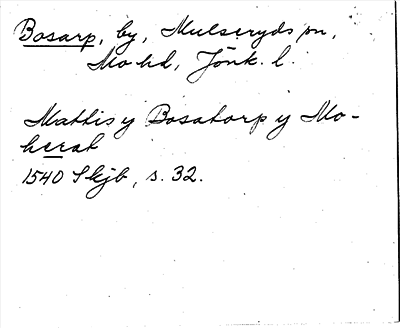 Bosarp, by, Mulseryds sn,
Mo hd, Jönk. l.
Mattis y Bosatorp y Mo-
herat
1540 Skjb, s. 32.